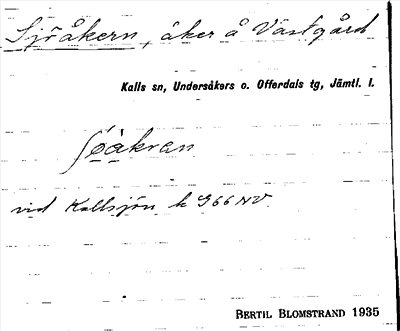 Sjöåkern, åker å Västgård
Kalls sn, Undersåkers o. Offerdals tg, Jämtl. l.
ʃøåkran
vid Kallsjön k G66NV.
BERTIL BLOMSTRAND 1935